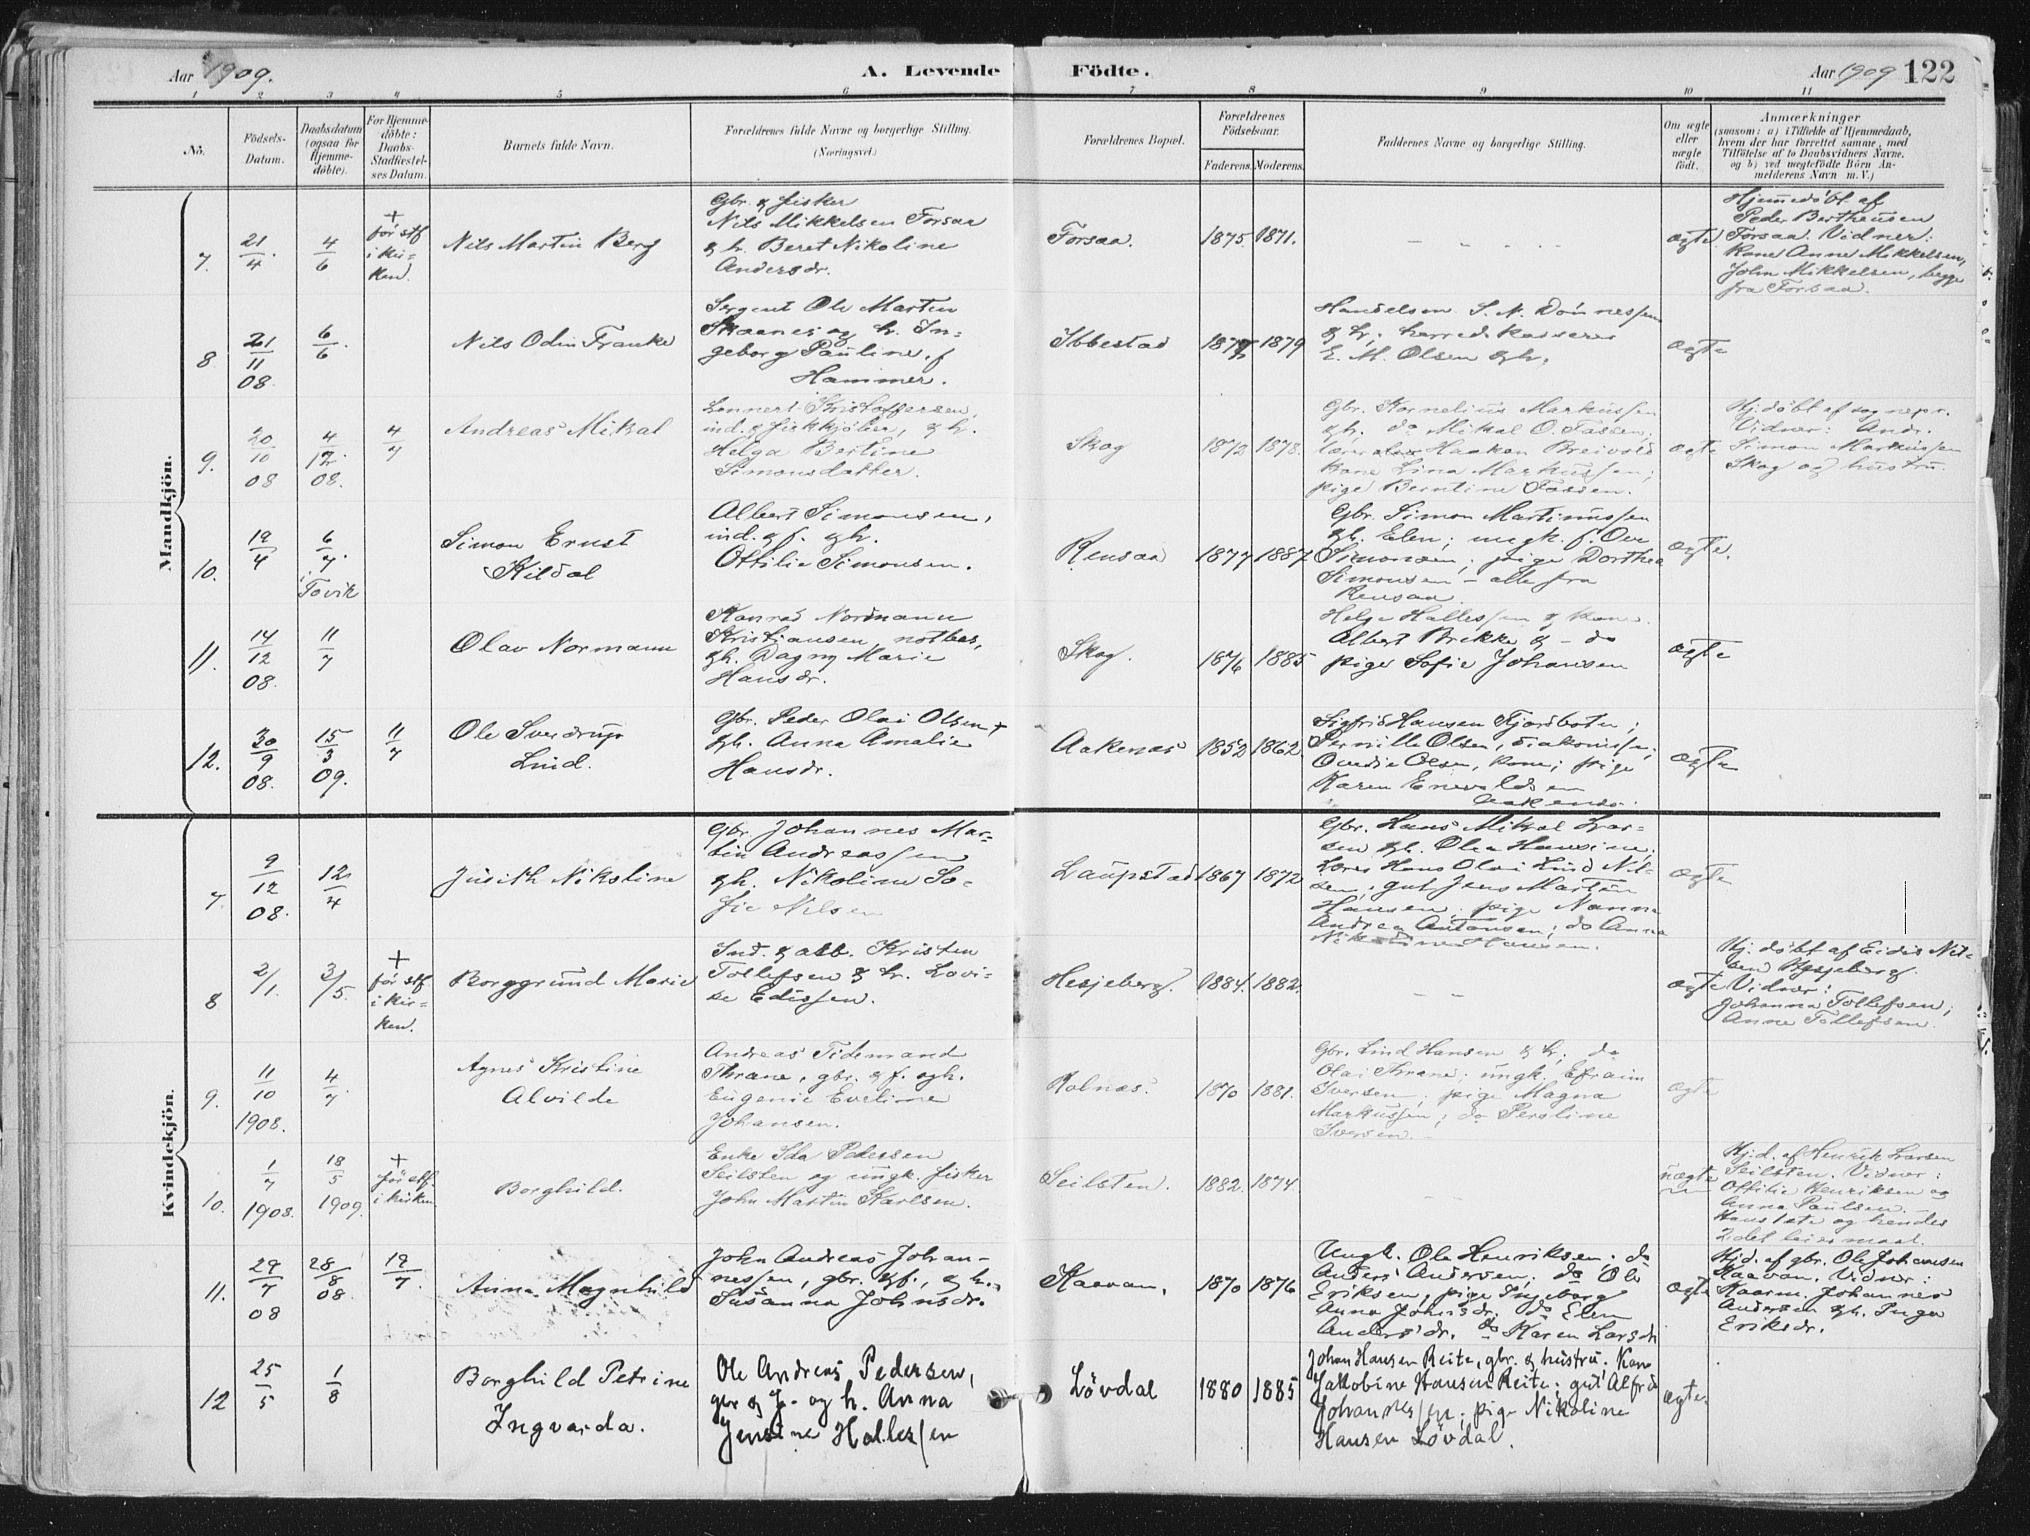 Aar 1909.
A. Levende
Födte.
Aar 1909
122
1 2 3 4 5 6 7 8 9 10 11
No.
Födsels-
Datum.
Daabsdatum
(ogsaa for
Hjemme-
döbte).
For Hjemme-
döbte:
Daabs-
Stadfæstel-
ses Datum.
Barnets fulde Navn.
Forældrenes fulde Navne og borgerlige Stilling.
(Næringsvei.)
Forældrenes Bopæl.
Forældrenes
Födselsaar.
Faderens. Moderens.
Faddernes Navne og borgerlige Stilling.
Om ægte
eller
uægte
födt.
Anmærkninger
(saasom: a) i Tilfælde af Hjemmedaab,
hvem der har forrettet samme, med
Tilföielse af to Daabsvidners Navne,
og b) ved uegtefödte Börn An-
melderens Navn m. V.)
Mandkjön.
7.
21/4
4/6
+
før stf
i kir-
ken.
Nils Martin Berg
Gbr. & fisker
Nils Mikkelsen Forsaa
& h. Beret Nikoline
Andersdr.
Forsaa.
1875 1871.
ægte
Hjemmedöbt af
Peder Berthensen
Forsaa. Vidner:
Kone Anne Mikkelsen,
John Mikkelsen, begge
fra Forsaa.
8
21/11 08
6/6
Nils Odin Franke
Sergent Ole Martin
Skaanes og h. In-
geborg Pauline, f
Hammer.
Ibbestad
1877 1879
Handelsm. S. N. Dönnessen
& h; herredskasserer
E. M. Olsen & h.
ægte
9.
20/10 08
4/12 08.
4/7
Andreas Mikal
Lennert Kristoffersen,
ind. & fiskkjöber, & h.
Helga Bertine
Simonsdatter.
Skog
1872 1878.
Gbr. Kornelius Markussen
& h. do Mikal O. Tassen;
lærer Haakon Breivold
kone Lina Markussen;
pige Berntine Tassen.
ægte
Hj. döbt af sognepr.
Vidner: Andr.
Simon Markussen
Skog og hustru.
10.
19/4
6/7.
i
Tovik
Simon Ernst
Kildal
Albert Simonsen,
ind. & f. & h.
Ottilie Simonsen.
Rensaa
1877 1887
Gbr. Simon Martinussen
& h. Elen; ungk. f. Ove
Simonsen; pige Dorthea
Simonsen – alle fra
Rensaa
ægte.
11.
14/12 08.
11/7
Olav Normann
Konrad Normann
Kristiansen, notbas,
& h. Dagny Marie
Hansdr.
Skog.
1876 1885
Helge Hallessen & kone.
Albert Brekke & – do
pige Sofie Johansen
ægte
12.
30/9 08.
15/3 09.
11/7
Ole Sverdrup
Lind.
Gbr. Peder Olai Olsen +
& h. Anna Amalie
Hansdr.
Aakenes
1852 1862
Sigfrid Hansen Fjordbotn;
Pernille Olsen, diakonisse;
Ovedie Olsen, kone; pige
Karen Enevoldsen
Aakenes.
ægte
Kvindekjön.
7
9/12 08.
12/4
Judith Nikoline
Gbr. Johannes Mar-
tin Andreassen
& h. Nikoline So-
fie Nilsen
Laupstad
1867 1872
Gbr. Hans Mikal Lar-
sen & h. Olea Hansine;
Lærer Hans Olai Lind Nil-
sen; gut Jens Martin
Hansen; pige Nanna
Andrea Antonsen; do Anna
ægte
8
2/1.
3/5.
+
før stf
i kir-
ken.
Borggrund Marie
Ind. & arb. Kristen
Tollefsen & h. Lovi-
se Edissen.
Hesjeberg.
1884. 1882.
ægte
Hj. döbt af Eidis Nil-
sen Hesjeberg.
Vidner:
Johanna Tollefsen;
Anne Tollefsen.
9.
11/10 1908.
4/7.
Agnes Kristine
Alvilde
Andreas Tidemand
Thrane, gbr. & f. & h.
Eugenie Eveline
Johansen.
Rolnæs.
1870 1881.
Gbr. Lind Hansen & h; do
Olai Thrane; ungk. Efraim
Iversen; pige Magna
Markussen; do Persline
Iversen. –
ægte
10.
1/7 1908.
18/5 1909.
+
før stf
i kirken
Borghild.
Enke Ida Pedersen
Seilsten og ungk. fisker
John Martin Karlsen.
Seilsten.
1882. 1874.
uægte
Hj.d. af Henrik Larsen
Seilsten. Vidner:
Offilie Henriksen og
Anna Paulsen. –
Hans 1ste og hendes
2det leiermaal.
11.
29/7 08
28/8 08.
12/7.
Anna Magnhild
John Andreas Johan-
nessen, gbr. & f., & h.
Susanna Johnsdr.
Kaavan,
1870 1876
Ungk. Ole Henriksen; do
Anders Andersen; do Ole
Eriksen, pige Ingeborg
Anna Johnsdr. do Elen
Andersdr. do Karen Larsdr
ægte
Hjd. af gbr. Ole Johansen
Kaavan. Vidner:
Kaarm. Johannes
Andersen & h. Inga
Eriksdr.
12
25/5
1/8
Borghild Petrine
Ingvarda.
Ole Andreas Pedersen,
gbr & f. og h. Anna
Jensine Hallessen
Lövdal
1880 1885
Johan Hansen Reite, gbr. & hustru. Kone
Jakobine Hansen Reite; gut Alfred
Johannessen; pige Nikoline
Hansen Lövdal.
ægte